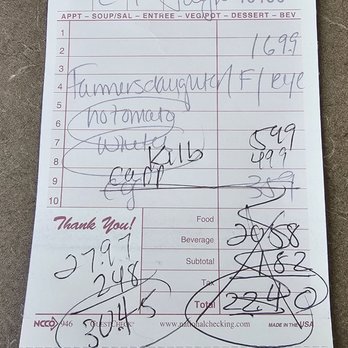 APPT - SOUP/SAL - ENTREE - VEG/POT - DESSERT - BEV
1
2 1699
3
4 Farmersdaughter/F/reye
5
6 notomato
7 White 599
8 Kilb 499
9 Egg 359
10
Thank You!
Food
27.97 Beverage 2058
248 Subtotal 182
Tax
30.45 Total 2240
NCCO 946 GUESTCHECK™ www.nationalchecking.com MADE IN THE USA